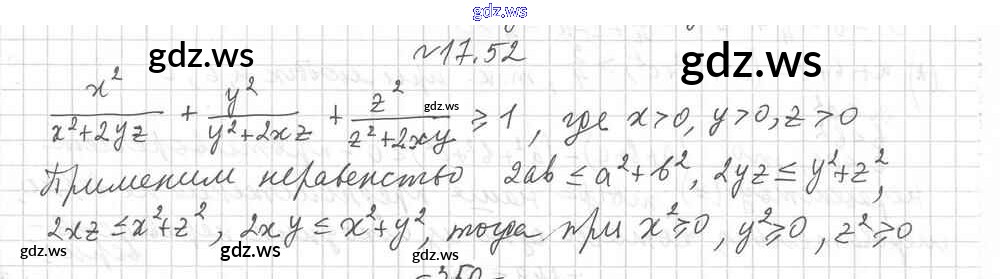 gdz.ws
gdz.ws
gdz.ws
№17.52
x²/(x²+2yz) + y²/(y²+2xz) + z²/(z²+2xy) ≥ 1, где x>0, y>0, z>0
gdz.ws
Применим неравенство 2ab ≤ a²+b², 2yz ≤ y²+z²,
2xz ≤ x²+z², 2xy ≤ x²+y², тогда при x²≥0, y²≥0, z²≥0
gdz.ws
gdz.ws
gdz.ws
-350-